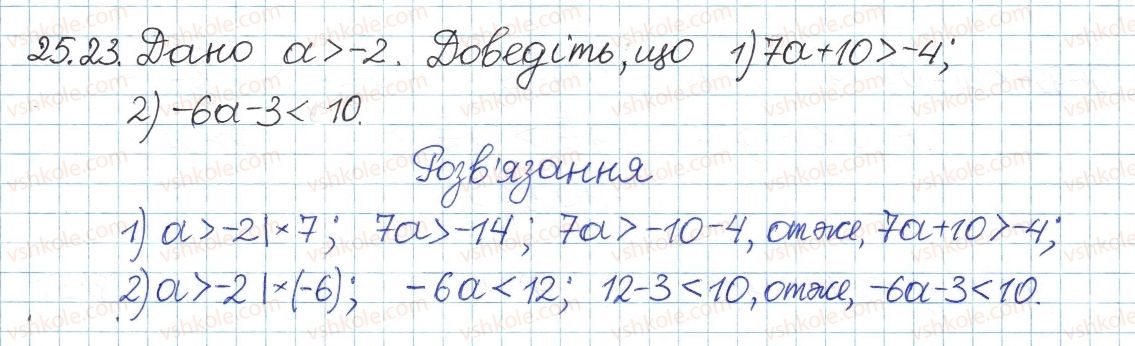 25.23. Дано a>-2. Доведіть, що 1) 7a+10>-4;
2) -6a-3< 10.
Розв'язання
1) a>-2|×7; 7a>-14; 7a>-10-4, отже, 7a+10>-4;
2) a>-2|×(-6); -6a<12; 12-3<10, отже, -6a-3<10.